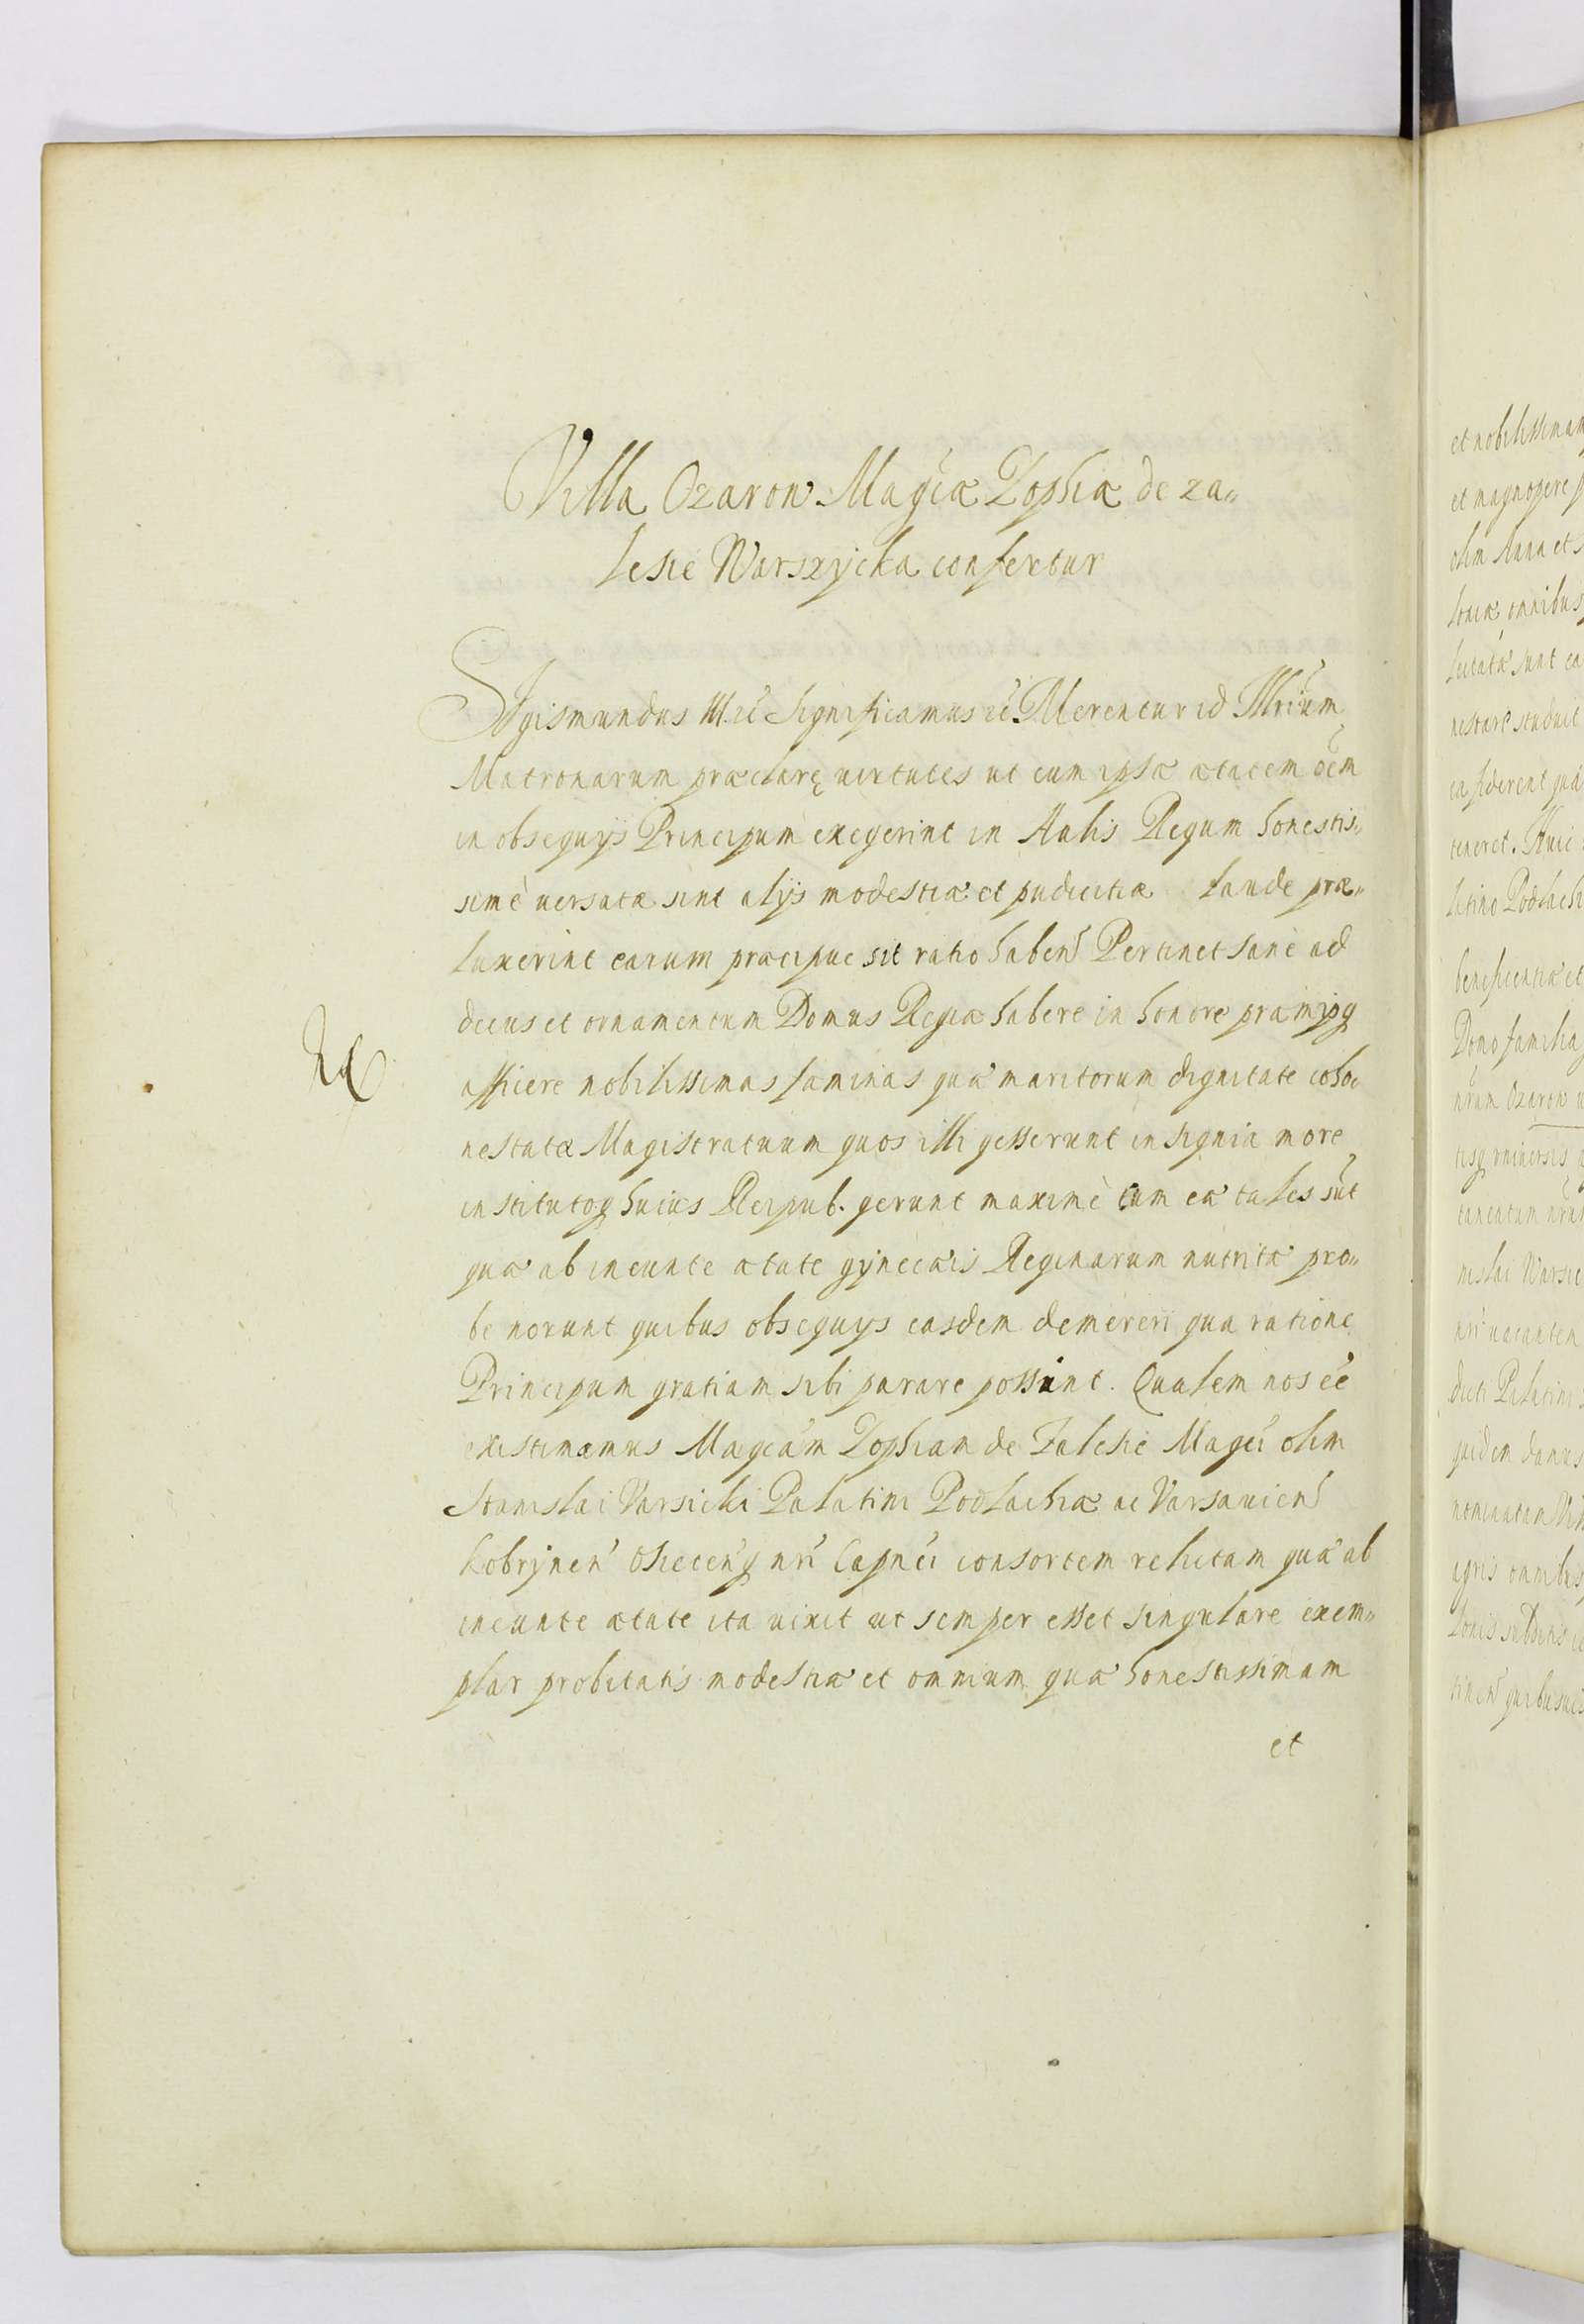 Villa Ozarow Magcæ Zophiæ de za„
lesie Warszycka confertur
Sigismundus III. etc Significamus etc. Merentur id Illrium
Matronarum præclarę uirtutes ut cum ipsæ ætatem oem
in obsequijs Principum exegerint in Aulis Regum honestis„
sime uersatæ sint alijs modestiæ et pudicitiæ laude præ„
luxerint earum præcipue sit ratio haben Pertinet sane ad
decus et ornamentum Domus Regiæ habere in honore præmijsq
afficere nobilissimas fæminas quæ maritorum dignitate coho„
nestatæ Magistratuum quos illi gesserunt insignia more
institutoq huius Reipub. gerunt maxime cum eæ tales sut
quæ ab ineunte ætate gijnecæis Reginarum nutritæ pro„
be norunt quibus obsequys easdem demereri qua ratione
Principum gratiam sibi parare possint. Qualem nos ee
existimamus Magcam Zophiam de Zalesie Magci olim
Stanislai Varsicki Palatini Podlachiæ ac Varsauien
Kobrijnen Osiecenq nri Capnei consortem relictam quæ ab
ineunte ætate ita uixit ut semper esset singulare exem„
plar probitatis modestiæ et omnium quæ honestissimam
et
et nobilissimam
et magnopere
olim Anna et
loniæ omnibus
lectatæ sunt ea
nestare studuit
ea fiderent
teneret. Huic
latino Podlachi
beneficentiæ et
Domo familia
nram Ozarow
tisq uniuersis
nislai Warsic
nri uacanten
dicti Palatini
quidem damus
nominatam Vil
agris omnibus
tinen quibusuis